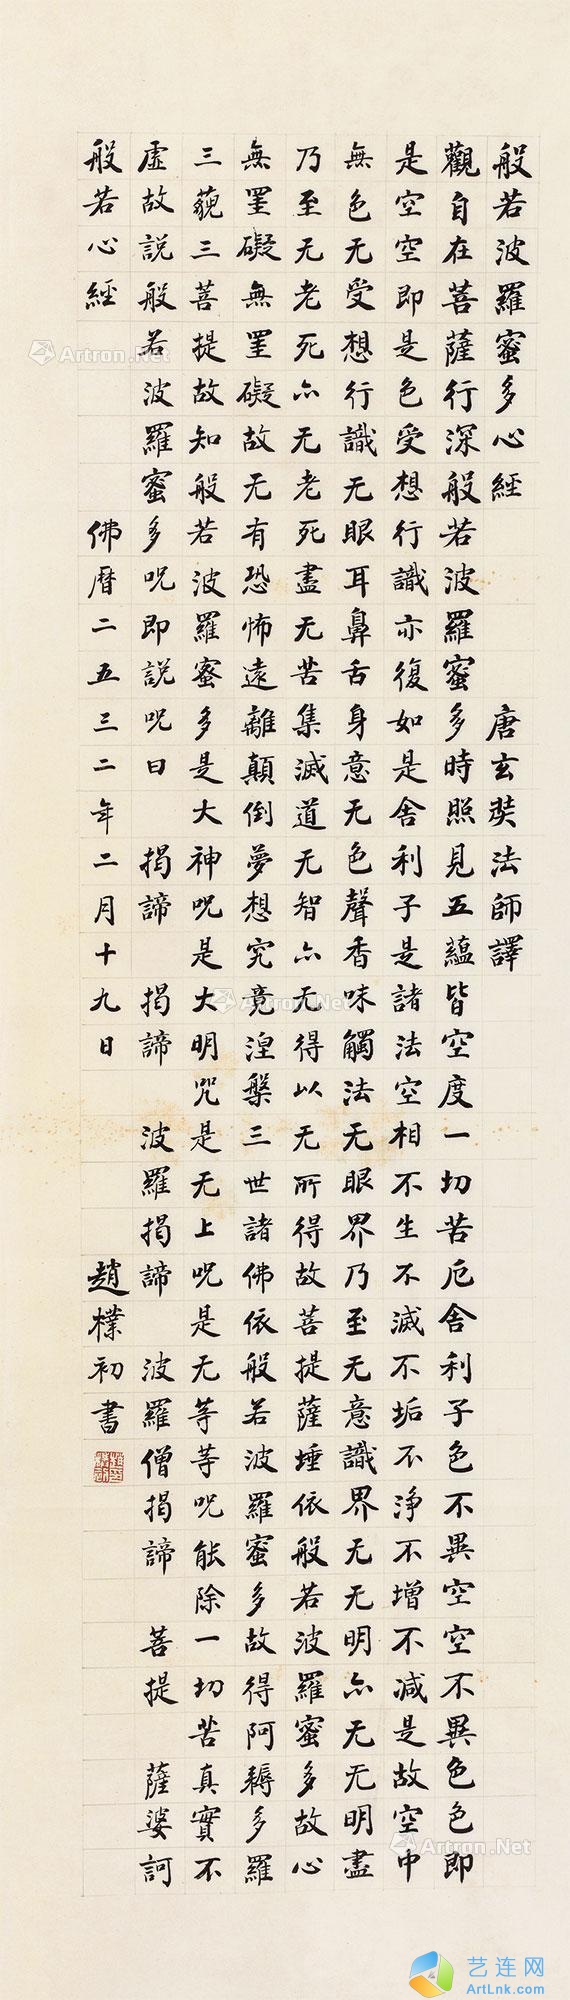 般若波羅蜜多心經 唐玄奘法師譯
觀自在菩薩行深般若波羅蜜多時照見五蘊皆空度一切苦厄舍利子色不異空空不異色色即
是空空即是色受想行識亦復如是舍利子是諸法空相不生不滅不垢不淨不增不減是故空中
無色无受想行識无眼耳鼻舌身意无色聲香味觸法无眼界乃至无意識界无无明亦无无明盡
乃至无老死亦无老死盡无苦集滅道无智亦无得以无所得故菩提薩埵依般若波羅蜜多故心
無罣礙無罣礙故无有恐怖遠離顛倒夢想究竟涅槃三世諸佛依般若波羅蜜多故得阿耨多羅
三藐三菩提故知般若波羅蜜多是大神呪是大明咒是无上呪是无等等呪能除一切苦真實不
虛故説般若波羅蜜多呪即説呪曰 揭諦 揭諦 波羅揭諦 波羅僧揭諦 菩提 薩婆訶
般若心經 佛曆二五三二年二月十九日 趙樸初書
Artron.Net
Artron.Net
Artron.Net
艺连网
ArtLnk.com